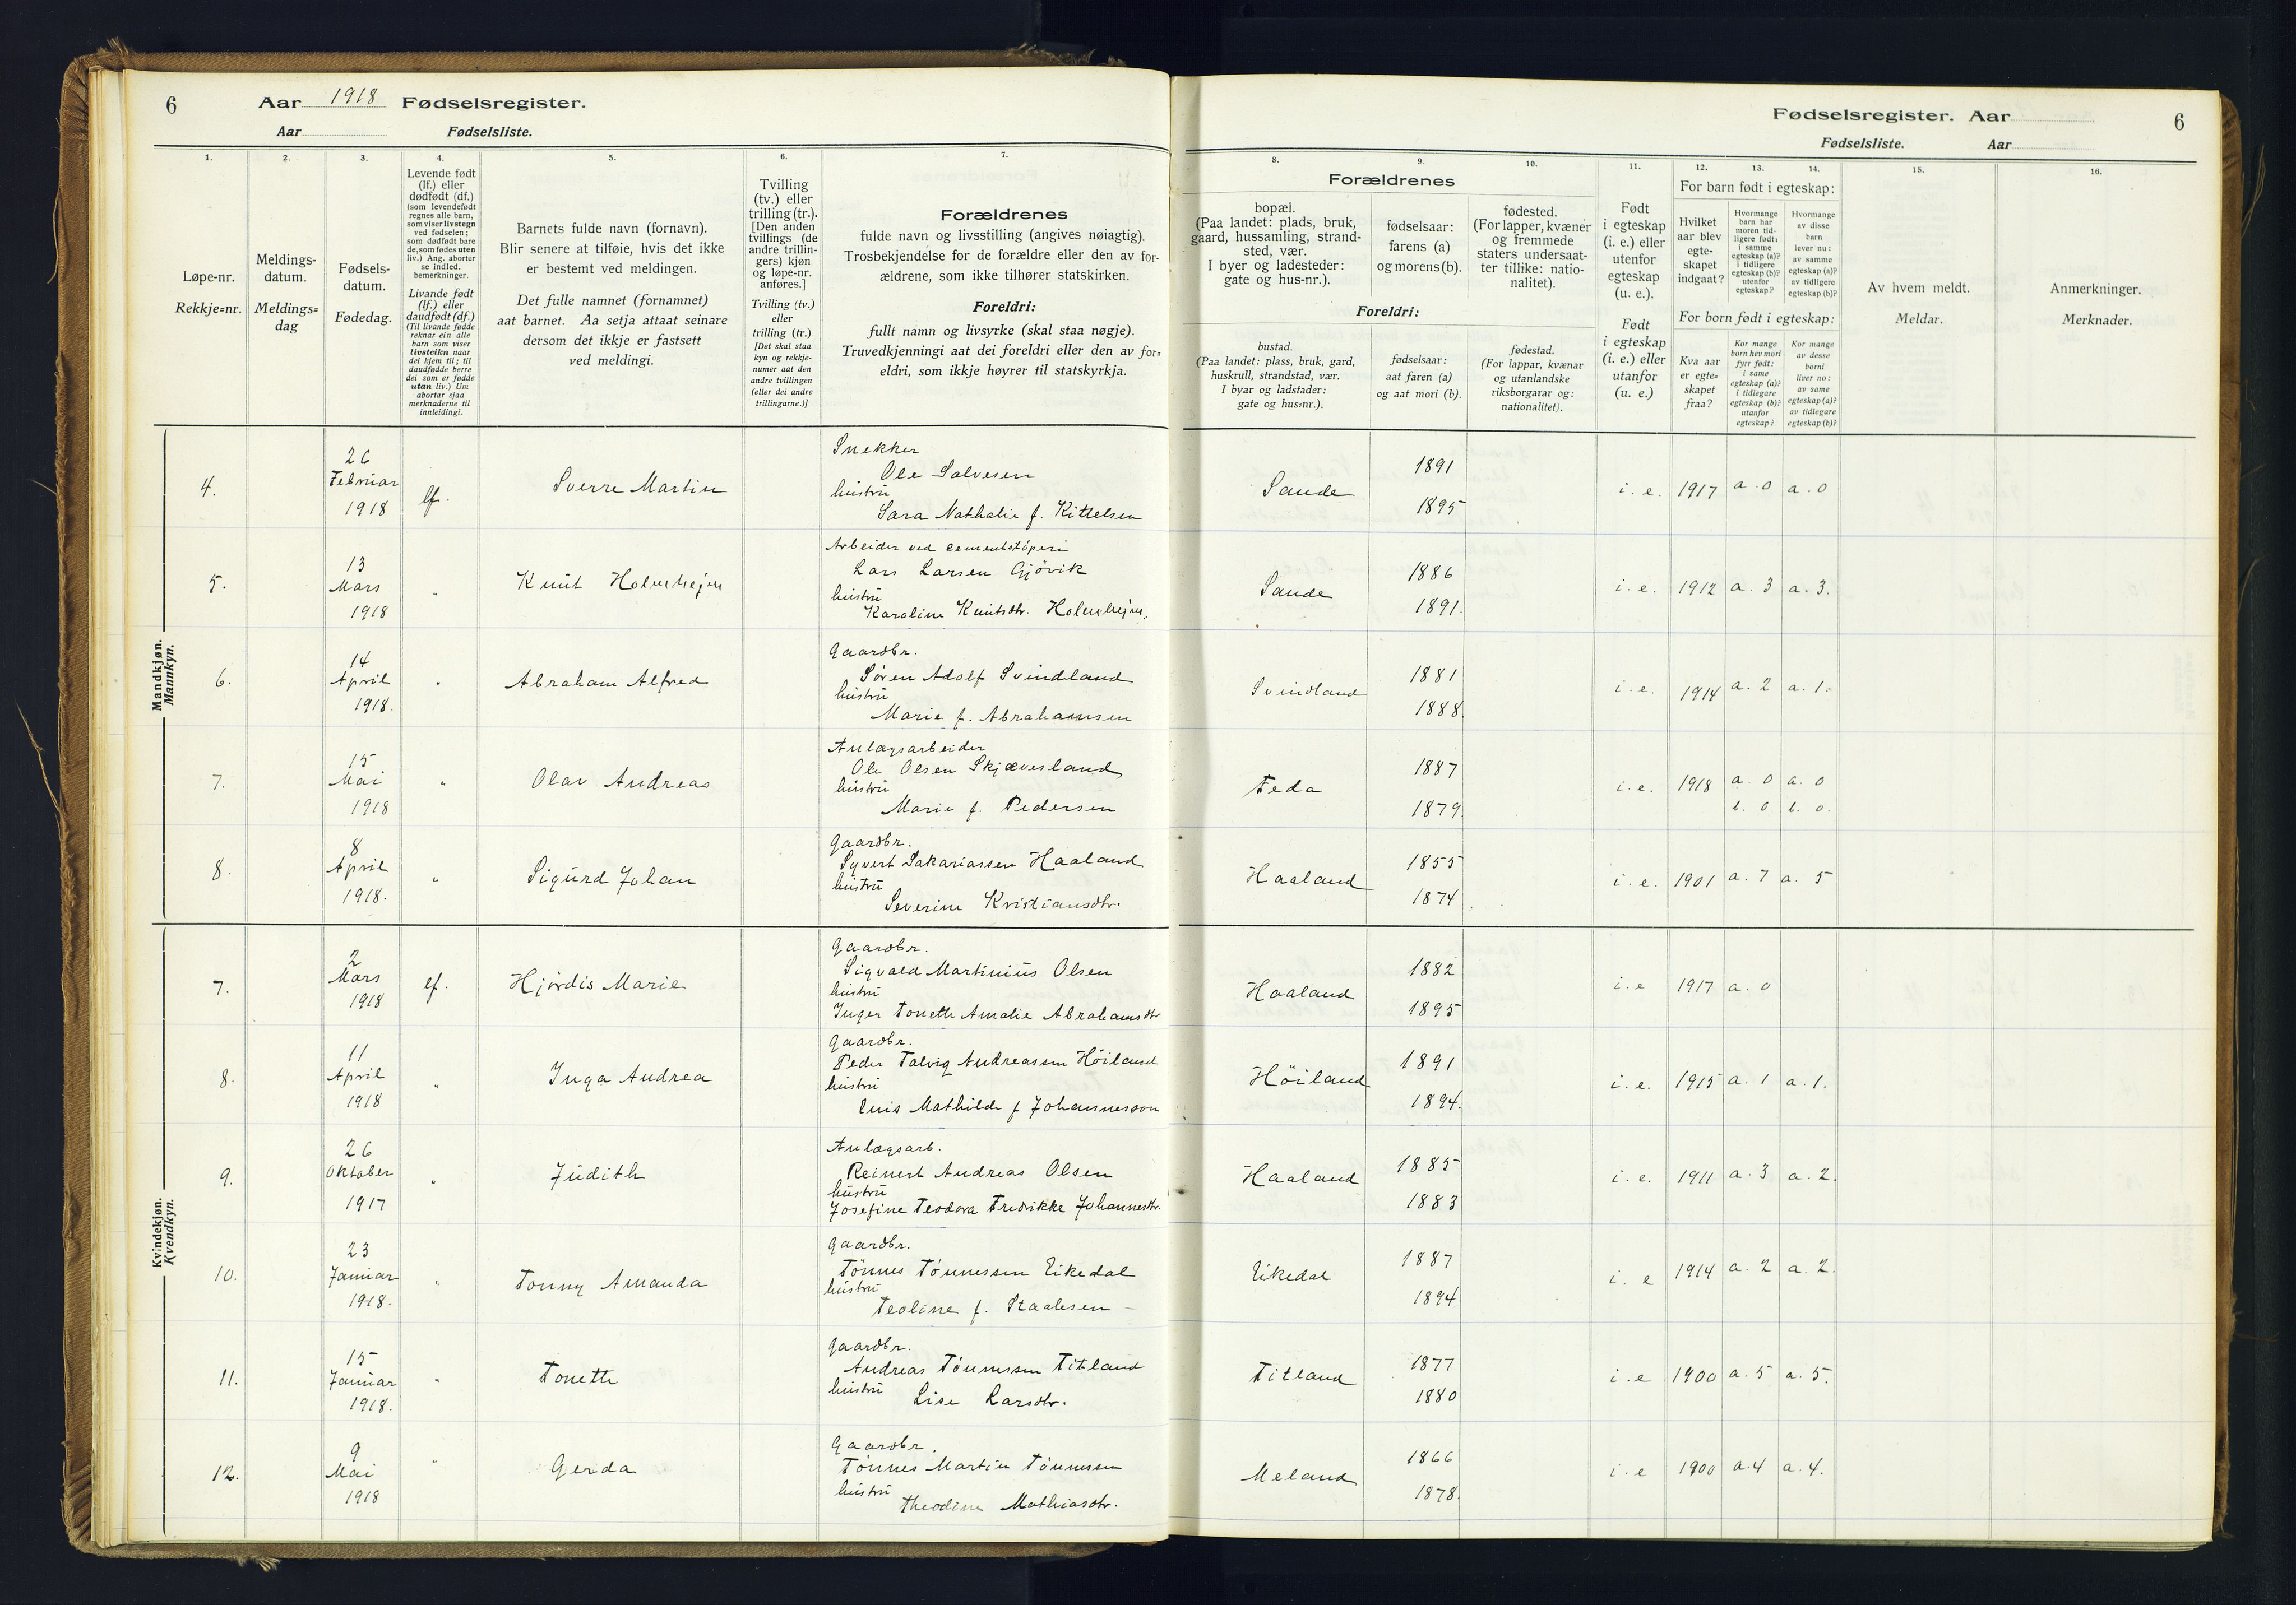 6 Aar 1918 Fødselsregister.
Aar Fødselsliste.
1.
2.
3.
4.
5.
6.
7.
Løpe-nr.
Rekkje=nr.
Meldings-
datum.
Meldings=
dag
Fødsels-
datum.
Fødedag.
Levende født
(lf.) eller
dødfødt (df.)
(som levendefødt
regnes alle barn,
som viser livstegn
ved fødselen;
som dødfødt bare
de, som fødes uten
liv.) Ang. aborter
se indled.
bemerkninger.
Livande født
(lf.) eller
daudfødt (df.)
(Til livande fødde
reknar ein alle
barn som viser
livsteikn naar
dei kjem til; til
daudfødde berre
dei som er fødde
utan liv.) Um
abortar sjaa
merknaderne til
innleidingi.
Barnets fulde navn (fornavn).
Blir senere at tilføie, hvis det ikke
er bestemt ved meldingen.
Det fulle namnet (fornamnet)
aat barnet. Aa setja attaat seinare
dersom det ikkje er fastsett
ved meldingi.
Tvilling
(tv.) eller
trilling (tr.).
[Den anden
tvillings (de
andre trillin-
gers) kjøn
og løpe-nr.
anføres.]
Tvilling (tv.)
eller
trilling (tr.)
[Det skal staa
kyn og rekkje-
numer aat den
andre tvillingen
(eller dei andre
trillingarne.)]
Forældrenes
fulde navn og livsstilling (angives nøiagtig).
Trosbekjendelse for de forældre eller den av for-
ældrene, som ikke tilhører statskirken.
Foreldri:
fullt namn og livsyrke (skal staa nøgje).
Truvedkjenningi aat dei foreldri eller den av for=
eldri, som ikkje høyrer til statskyrkja.
Mandkjøn.
Mannkyn.
4.
26
Februar
1918
lf.
Sverre Martin
Snekker
Ole Salvesen
hustru
Sara Nathalie f. Kittelsen
5.
13
Mars
1918
"
Knut Holmhejen
Arbeider ved cementstøperi
Lars Larsen Gjövik
hustru
Karoline Knutsdtr. Holmhejen.
6.
14
April
1918.
"
Abraham Alfred
Gaardbr.
Søren Adolf Svindland
hustru
Marie f. Abrahamsen
7.
15
Mai
1918
"
Olav Andreas
Anlægsarbeider
Ole Olsen Skjæveland
hustru
Marie f. Pedersen
8.
8
April
1918.
"
Sigurd Johan
Gaardbr.
Syvert Sakariassen Haaland
hustru
Severine Kristiansdtr.
Kvindekjøn.
Kvendkyn.
7.
2
Mars
1918
lf.
Hjördis Marie
Gaardbr.
Sigvald Martinius Olsen
hustru
Inger Tonette Amalie Abrahamsdtr
8.
11
April
1918
"
Inga Andrea
Gaardbr.
Peder Talvig Andreassen Höiland
hustru
Enis Mathilde f Johannesson
9.
26
Oktober
1917
"
Judith
Anlægsarb.
Reinert Andreas Olsen
hustru
Josefine Teodora Fredrikke Johannesdtr.
10.
23
Januar
1918.
"
Tonny Amanda
Gaardbr.
Tönnes Tönnessen Eikedal
hustru
Teoline f. Staalesen
11.
15
Januar
1918.
"
Tonette
Gaardbr.
Andreas Tönnessen Titland
hustru
Lise Larsdtr.
12.
9
Mai
1918
"
Gerda
Gaardbr.
Tönnes Martin Tönnessen
hustru
Theodine Mathiasdtr.
Fødselsregister. Aar 6
Fødselsliste. Aar
8.
9.
10.
11.
12.
13.
14.
15.
16.
Forældrenes
bopæl.
(Paa landet: plads, bruk,
gaard, hussamling, strand-
sted, vær.
I byer og ladesteder:
gate og hus-nr.).
fødselsaar:
farens (a)
og morens (b).
fødested.
(For lapper, kvæner
og fremmede
staters undersaat-
ter tillike: natio-
nalitet).
Foreldri:
bustad.
(Paa landet: plass, bruk, gard,
huskrull, strandstad, vær.
I byar og ladstader:
gate og hus=nr.).
fødselsaar:
aat faren (a)
og aat mori (b).
fødestad.
(For lappar, kvænar
og utanlandske
riksborgarar og:
nationalitet).
Født
i egteskap
(i. e.) eller
utenfor
egteskap
(u. e.).
Født
i egteskap
(i. e.) eller
utanfor
(u. e.)
For barn født i egteskap:
Hvilket
aar blev
egte-
skapet
indgaat?
Hvormange
barn har
moren tid-
ligere født:
i samme
egteskap (a)?
i tidligere
egteskap (b)?
utenfor
egteskap?
Hvormange
av disse
barn
lever nu:
av samme
egteskap (a)?
av tidligere
egteskap (b)?
For born født i egteskap:
Kva aar
er egte=
skapet
fraa?
Kor mange
born hev mori
fyrr født:
i same
egteskap (a)?
i tidlegare
egteskap (b)?
utanfor
egteskap?
Kor mange
av desse
borni
liver no:
av same
egteskap (a)?
av tidlegare
egteskap (b)?
Av hvem meldt.
Meldar.
Anmerkninger.
Merknader.
Sande
1891
1895
i. e. 1917 a. 0 a. 0
Sande
1886
1891.
i. e. 1912 a. 3 a. 3.
Svindland
1881
1888.
i. e. 1914 a. 2 a. 1.
Feda
1887
1879.
i. e. 1918 a. 0 a. 0
b. 0 b. 0.
Haaland
1855
1874
i. e. 1901 a. 7 a. 5
Haaland
1882
1895
i. e 1917 a. 0
Höiland
1891
1894.
i. e. 1915 a. 1 a. 1.
Haaland
1885
1883
i. e. 1911 a. 3 a. 2.
Eikedal
1887
1894
i. e 1914 a. 2 a. 2.
Titland
1877
1880
i. e 1900 a. 5 a. 5.
Meland
1866
1878.
i. e 1900 a. 4 a. 4.